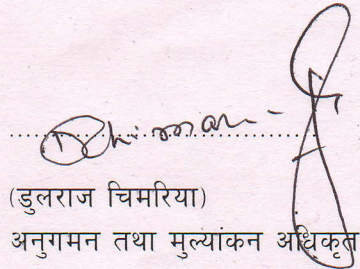 (डुलराज चिमरिया)
अनुगमन तथा मुल्यांकन अधिकृत